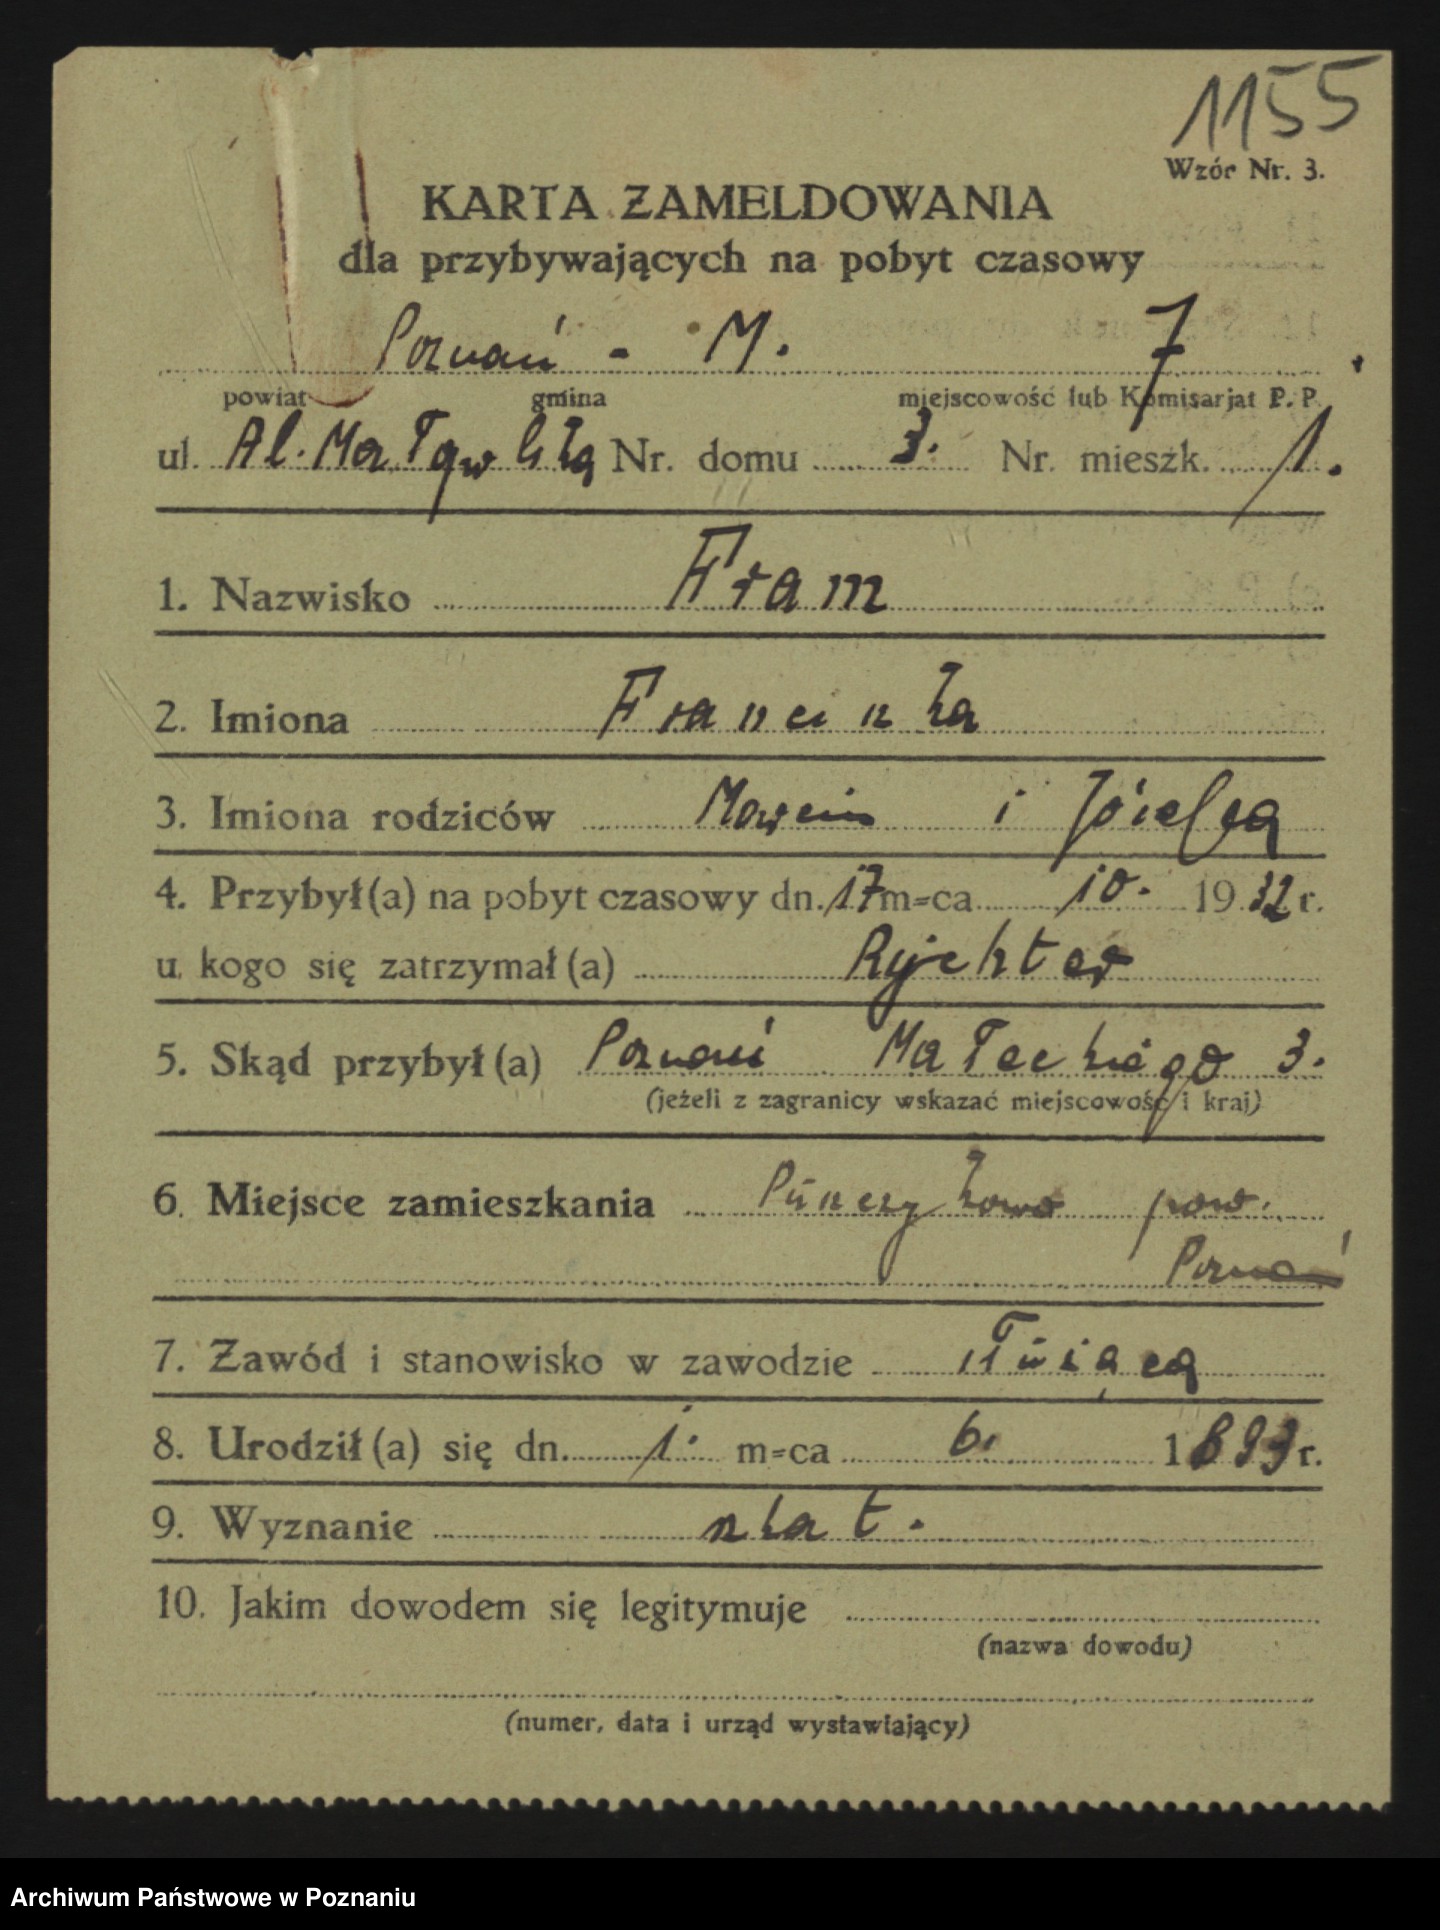 1155
Wzór Nr. 3.
KARTA ZAMELDOWANIA
dla przybywających na pobyt czasowy
Poznań - M. 7
powiat gmina miejscowość lub Komisarjat P. P.
ul. Al. Nr. domu 3. Nr. mieszk. 1.
1. Nazwisko Fram
2. Imiona
3. Imiona rodziców Marcin i Józefa
4. Przybył(a) na pobyt czasowy dn. 17 m=ca 10. 1932 r.
u kogo się zatrzymał(a)
5. Skąd przybył(a) Poznań Małeckiego 3.
(jeżeli z zagranicy wskazać miejscowość i kraj)
6. Miejsce zamieszkania pow.
Poznań
7. Zawód i stanowisko w zawodzie służąca
8. Urodził(a) się dn. 1. m=ca 6. 1893 r.
9. Wyznanie
10. Jakim dowodem się legitymuje
(nazwa dowodu)
(numer, data i urząd wystawiający)
Archiwum Państwowe w Poznaniu